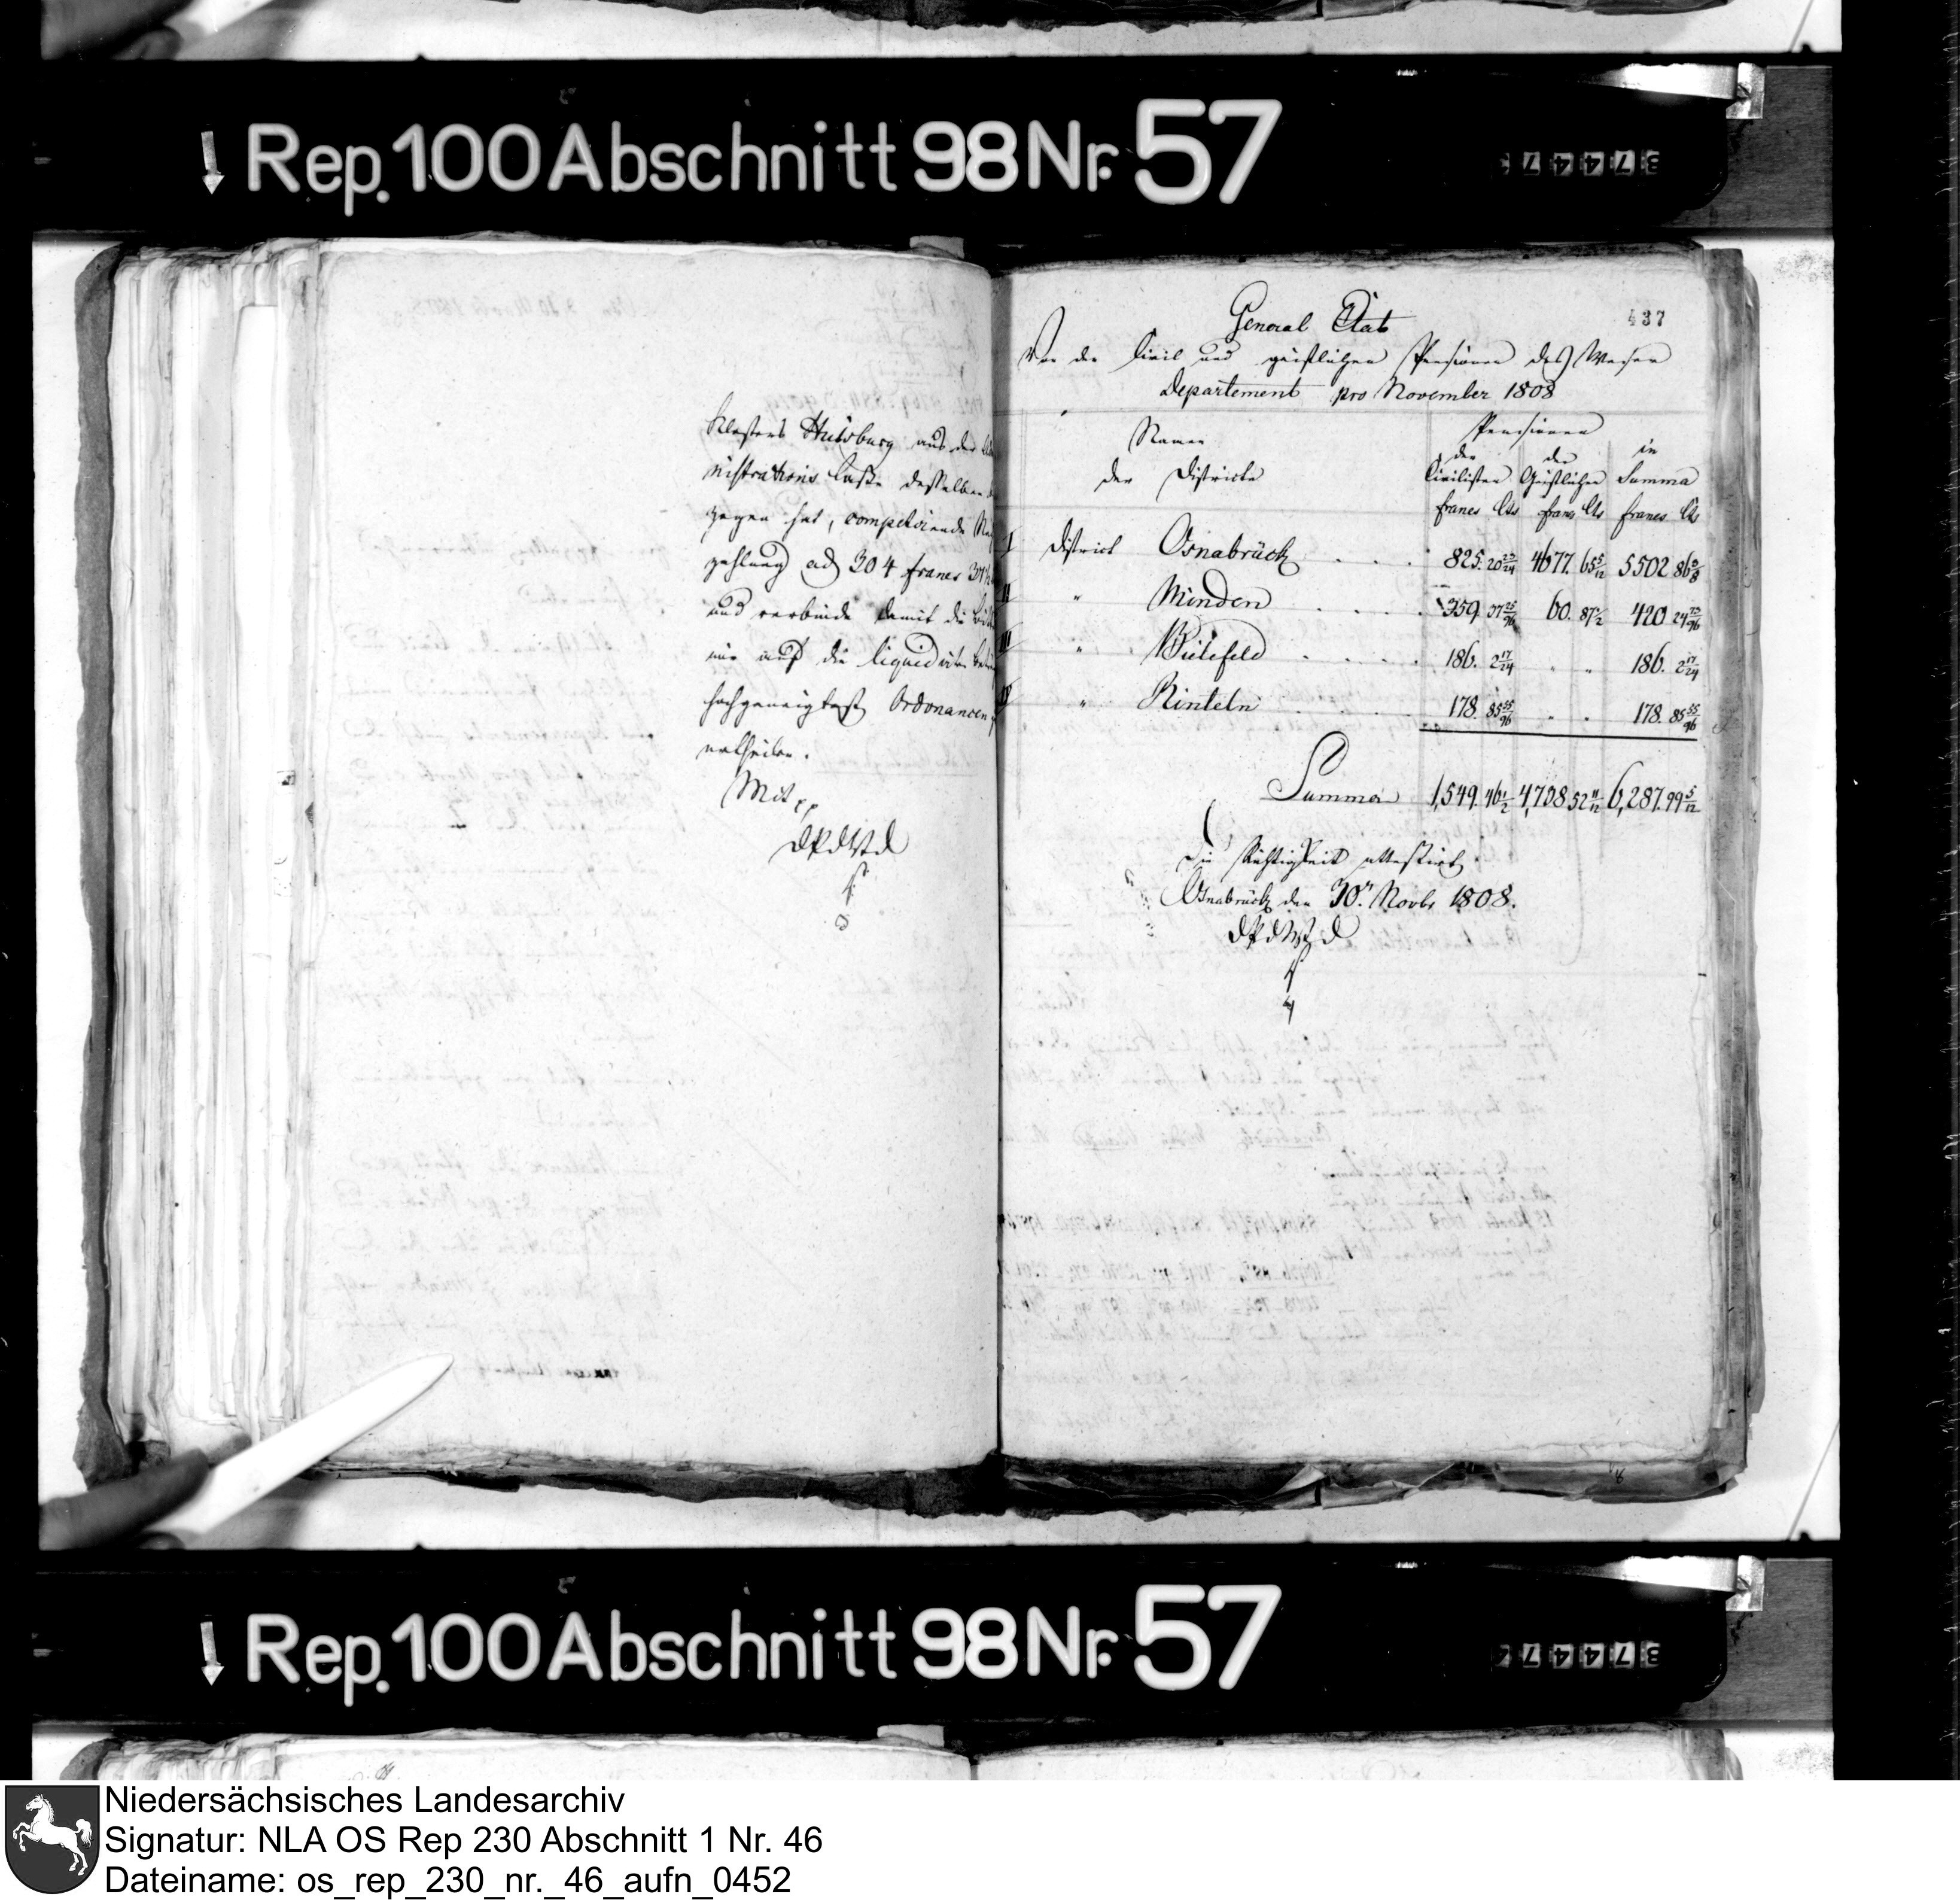 Rep. 100 Abschnitt 98 Nr. 57
Klosters Huisburg aus der
nistrations Casse desselben
gegen hat, competirende
zahlung ad 304 francs
und verbinde damit die
mir auf die liquidirte
hochgeneigtest Ordonancen
ertheilen.
Mit pp
DPdWD
437
General Etat
Von den Civil und geistlichen Pensionen des Weser
Departement pro November 1808
Namen
der Districte
Pensionen
der Civilisten
der Geistlichen
in Summa
francs Cts francs Cts francs Cts
I District Osnabrück . . . 825. 20 23/24 4677. 65 5/12 5502 86 3/8
II " Minden . . . . 359. 37 25/96 60. 87 1/2 420 24 73/96
III " Bielefeld . . . . 186. 2 17/24 " " 186. 2 17/24
IV " Rinteln . . . . 178. 85 55/96 " " 178. 85 55/96
Summa 1,549. 46 1/2 4,738 52 11/12 6,287. 99 5/12
Die Richtigkeit attestirt
Osnabrück den 30n Novbr 1808.
DPdWD
Rep. 100 Abschnitt 98 Nr. 57
Niedersächsisches Landesarchiv
Signatur: NLA OS Rep 230 Abschnitt 1 Nr. 46
Dateiname: os_rep_230_nr._46_aufn_0452